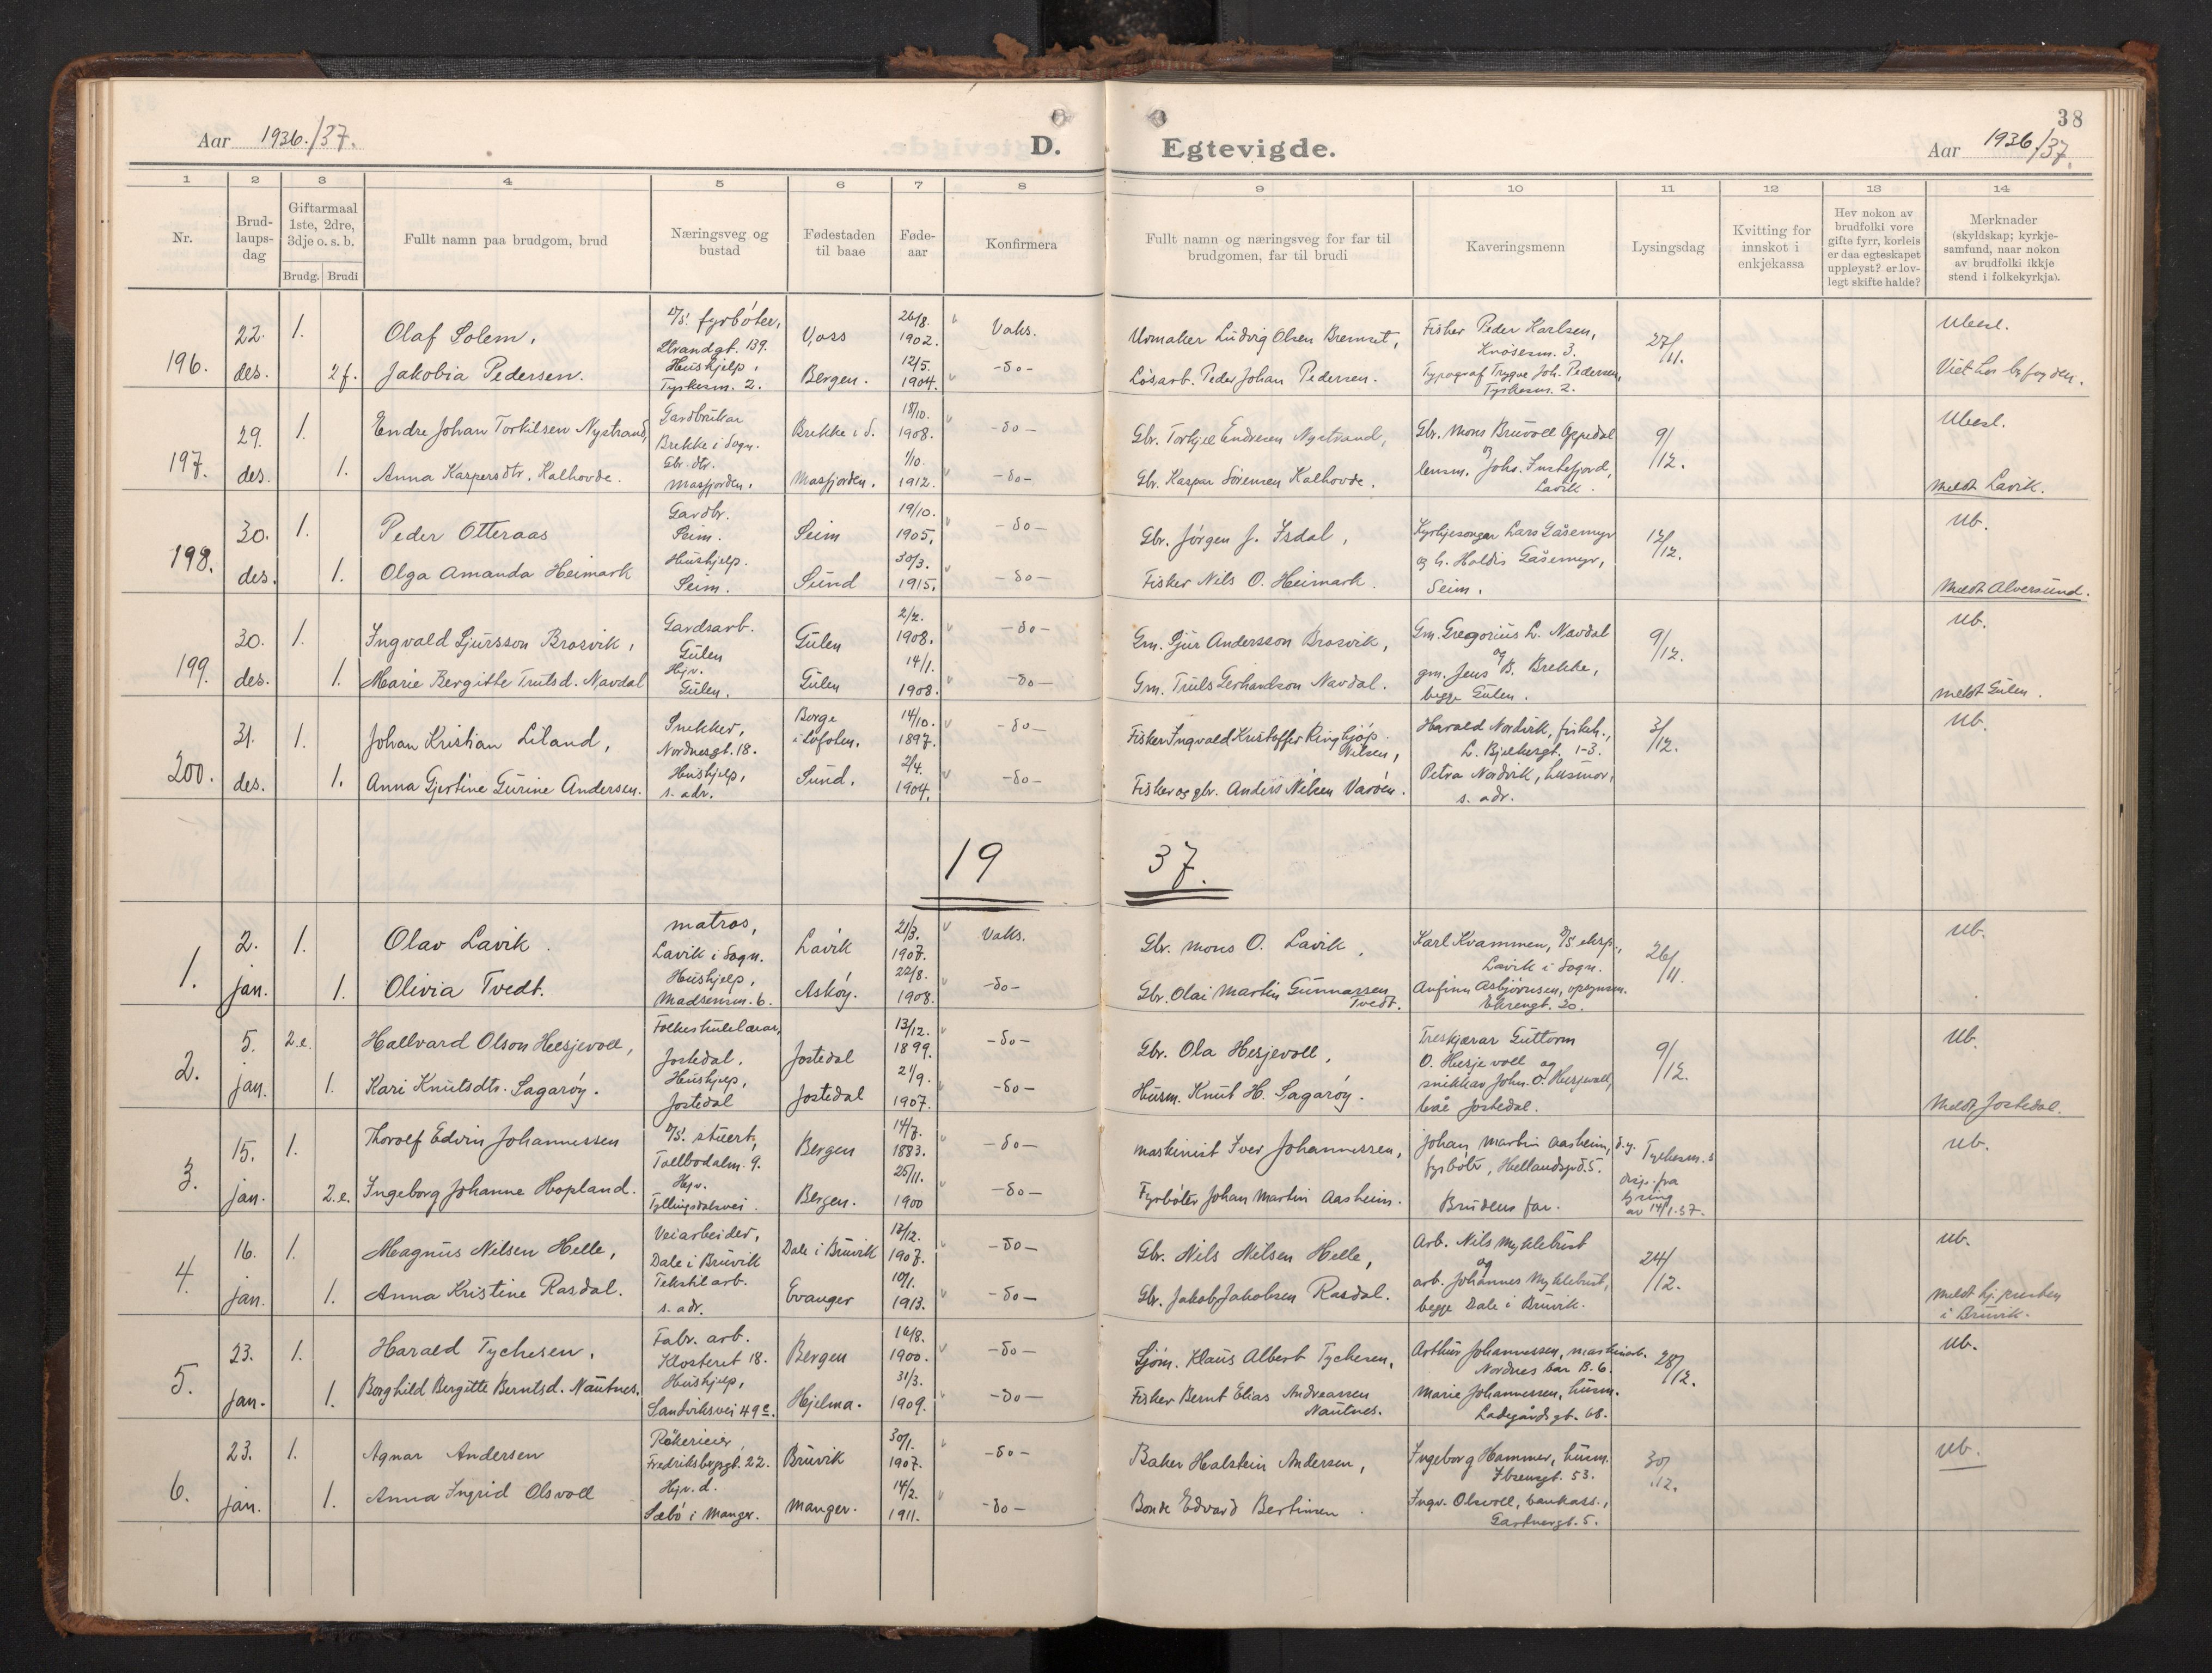 Aar 1936./37. D.
Egtevigde. Aar 1936./37.
38
1 2 3 4 5 6 7 8
9 10 11 12 13 14
Nr.
Brud-
laups-
dag
Giftarmaal
1ste, 2dre,
3dje o. s. b.
Brudg. Brudi
Fullt namn paa brudgom, brud
Næringsveg og
bustad
Fødestaden
til baae
Føde-
aar
Konfirmera
Fullt namn og næringsveg for far til
brudgomen, far til brudi
Kaveringsmenn
Lysingsdag
Kvitting for
innskot i
enkjekassa
Hev nokon av
brudfolki vore
gifte fyrr, korleis
er daa egteskapet
uppløyst? er lov-
legt skifte halde?
Merknader
(skyldskap; kyrkje-
samfund, naar nokon
av brudfolki ikkje
stend i folkekyrkja).
196.
22.
des.
1.
2 f.
Olaf Solem,
Jakobia Pedersen.
D/S. fyrbøter,
Strandgt. 139.
Hushjelp,
Tyskesm. 2.
Voss
Bergen.
26/8.
1902.
12/5.
1904.
Vaks.
-do-
Urmaker Ludvig Olsen Bremset,
Løsarb. Peder Johan Pedersen.
Fisker Peder Karlsen,
Knøsesm. 3.
Typograf Trygve Joh. Pedersen,
Tyskesm. 2.
27/11.
Ubesl.
197.
29.
des.
1.
1.
Endre Johan Torkilsen Nystrand,
Anna Kaspersdtr. Kalhovde.
Gardbrukar
Brekke i Sogn.
Gbr. dtr.
Masfjorden.
Brekke i S.
Masfjorden.
18/10.
1908.
1/10.
1912.
-do-
-do-
Gbr. Torkjel Endresen Nystrand,
Gbr. Kaspar Sørensen Kalhovde.
Gbr. Mons Bruvoll Oppedal
og
lensm. Johs. Instefjord,
Lavik.
9/12.
Ubesl.
Meldt Lavik.
198.
30.
des.
1.
1.
Peder Otteraas
Olga Amanda Heimark
Gardbr.
Seim.
Hushjelp.
Seim.
Seim
Sund
19/10.
1905.
30/3.
1915.
-do-
-do-
Gbr. Jørgen J. Isdal,
Fisker Nils O. Heimark.
Kyrkjesongar Lars Gåsemyr
og h. Haldis Gåsemyr,
Seim.
12/12.
Ub.
Meldt Alversund.
199.
30.
des.
1.
1.
Ingvald Sjursson Brosvik,
Marie Bergitte Trulsd. Navdal
Gardsarb.
Gulen
Hjv.
Gulen.
Gulen
Gulen
2/2.
1908.
14/1.
1908.
-do-
-do-
Gm. Sjur Andersson Brosvik,
Gm. Truls Gerhardson Navdal.
Gm. Gregorius L. Navdal
og
gm. Jens B. Brekke,
begge Gulen.
9/12.
Ub.
meldt Gulen.
200.
31.
des.
1.
1.
Johan Kristian Liland,
Anna Gjertine Gurine Andersen.
Snekker,
Nordnesgt. 18.
Hushjelp,
s. adr.
Borge
i Lofoten.
Sund.
14/10.
1897.
2/4.
1904.
-do-
-do-
Fisker Ingvald Kristoffer Ringkjøp
Nilsen,
Fisker og gbr. Anders Nilsen Varøen.
Harald Nordvik, fiskeh.,
L. Bjelbergt. 1-3.
Petra Nordvik, husmor,
s. adr.
3/12.
Ub.
19 37.
1.
2.
jan.
1.
1.
Olav Lavik.
Olivia Tvedt.
matros,
Lavik i Sogn.
Hushjelp,
Madsensm. 6.
Lavik
Askøy.
21/3.
1907.
22/8.
1908.
Vaks.
-do-
Gbr. Mons O. Lavik,
Gbr. Olai Martin Gunnarsen
Tvedt.
Karl Kvammen, D/S eksp.,
Lavik i Sogn.
Anfinn Asbjørnsen, opsynsm.
Ekrengt. 20.
26/11.
Ub.
2.
5.
jan.
2.e.
1.
Hallvard Olson Hesjevoll,
Kari Knutsdtr. Sagarøy.
Folkeskulelærar,
Jostedal.
Hushjelp,
Jostedal
Jostedal
Jostedal
13/12.
1899.
21/9.
1907.
-do-
-do-
Gbr. Ola Hesjevoll,
Husm. Knut H. Sagarøy.
Treskjærar Guttorm
O. Hesjevoll og
snikkar John. O. Hesjevoll,
båe Jostedal.
9/12.
Ub.
Meldt Jostedal.
3.
15.
jan.
1.
2.e.
Thorolf Edvin Johannessen
Ingeborg Johanne Hopland.
D/S. stuert,
Tollbodalm. 9.
Hjv.
Fyllingsdalsvei.
Bergen
Bergen.
14/7.
1883.
25/11.
1900
-do-
-do-
Maskinist Iver Johannessen,
Fyrbøter Johan Martin Aasheim.
Johan Martin Aasheim, d.y.
fyrbøter, Hellandsgd. 5.
Brudens far.
Disp. fra
lysing
av 14/1.37.
Ub.
4.
16.
jan.
1.
1.
Magnus Nilsen Helle,
Anna Kristine Rasdal.
Veiarbeider,
Dale i Bruvik
Tekstilarb.
s. adr.
Dale i Bruvik
Evanger
17/12.
1907.
10/1.
1913.
-do-
-do-
Gbr. Nils Nilsen Helle,
Gbr. Jakob Jakobsen Rasdal.
Arb. Nils Myklebust
og
arb. Johannes Myklebust,
begge Dale i Bruvik.
24/12.
Ub.
meldt hj. presten
i Bruvik.
5.
23.
jan.
1.
1.
Harald Tychesen.
Borghild Bergitte Berntsd. Nautnes.
Fabr. arb.
Klosteret 18.
Hushjelp,
Sandviksvei 49 c.
Bergen
Hjelma.
16/8.
1900.
31/3.
1909.
-do-
-do-
Sjøm. Klaus Albert Tychesen,
Fisker Bernt Elias Andreassen
Nautnes.
Arthur Johannessen, maskinarb.
Nordnes bar B. 6.
Marie Johannessen, husm.
Ladegårdsgt. 68.
28/12.
Ub.
6.
23.
jan.
1.
1.
Agnar Andersen
Anna Ingrid Olsvoll
Røkerieier
Fredriksbergsgt. 22.
Hjv. d.
Sæbø i Manger.
Bruvik
Manger.
30/1.
1907.
14/2.
1911.
-do-
-do-
Baker Halstein Andersen,
Bonde Edvard Bertinsen.
Ingeborg Hammer, husm.
Ibsensgt. 53.
Ingv. Olsvoll, bankass.,
Gartnergt. 5.
30/12.
Ub.